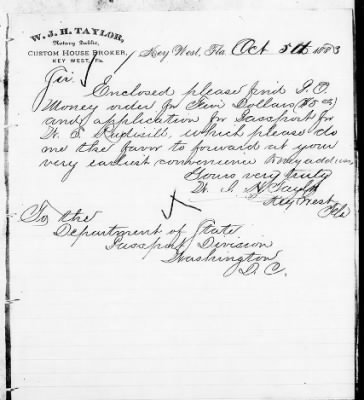 W. J. H. TAYLOR,
Notary Public,
CUSTOM HOUSE BROKER,
KEY WEST, Fla.
Key West, Fla. Oct 5th 1883
Sir
Enclosed please find P.O.
Money order for Five Dollars ($5 00)
and application for Passport for
W. E. which please do
me the favor to forward at your
very earliest convenience to my address
Yours very truly
W. J. H. Taylor
Key West
Fla
To the
Department of State
Passport Division
Washington
D. C.